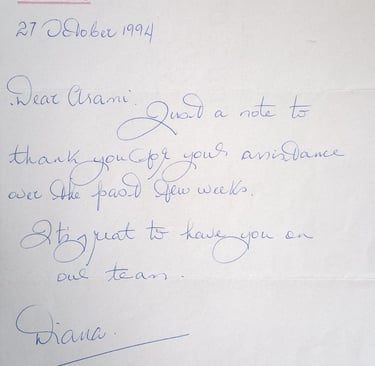 27 October 1994
Dear Arami.
Just a note to
thank you for your assistance
over the past few weeks.
It's great to have you on
our team.
Diana.